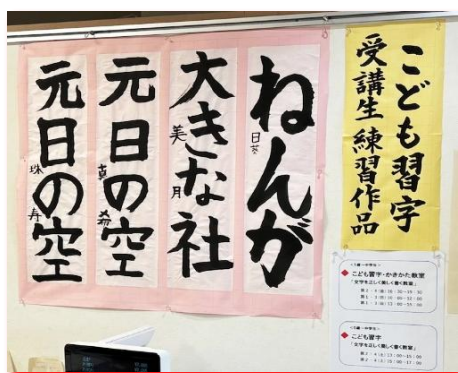 こども習字
受講生 練習作品
ねんが
日葵
大きな社
美月
元日の空
元日の空
珠寿
こども習字・かきかた教室
「文字を正しく美しく書く教室」
こども習字
「文字を正しく美しく書く教室」